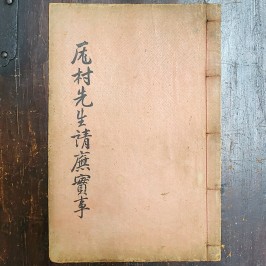 厖村先生請廡實事